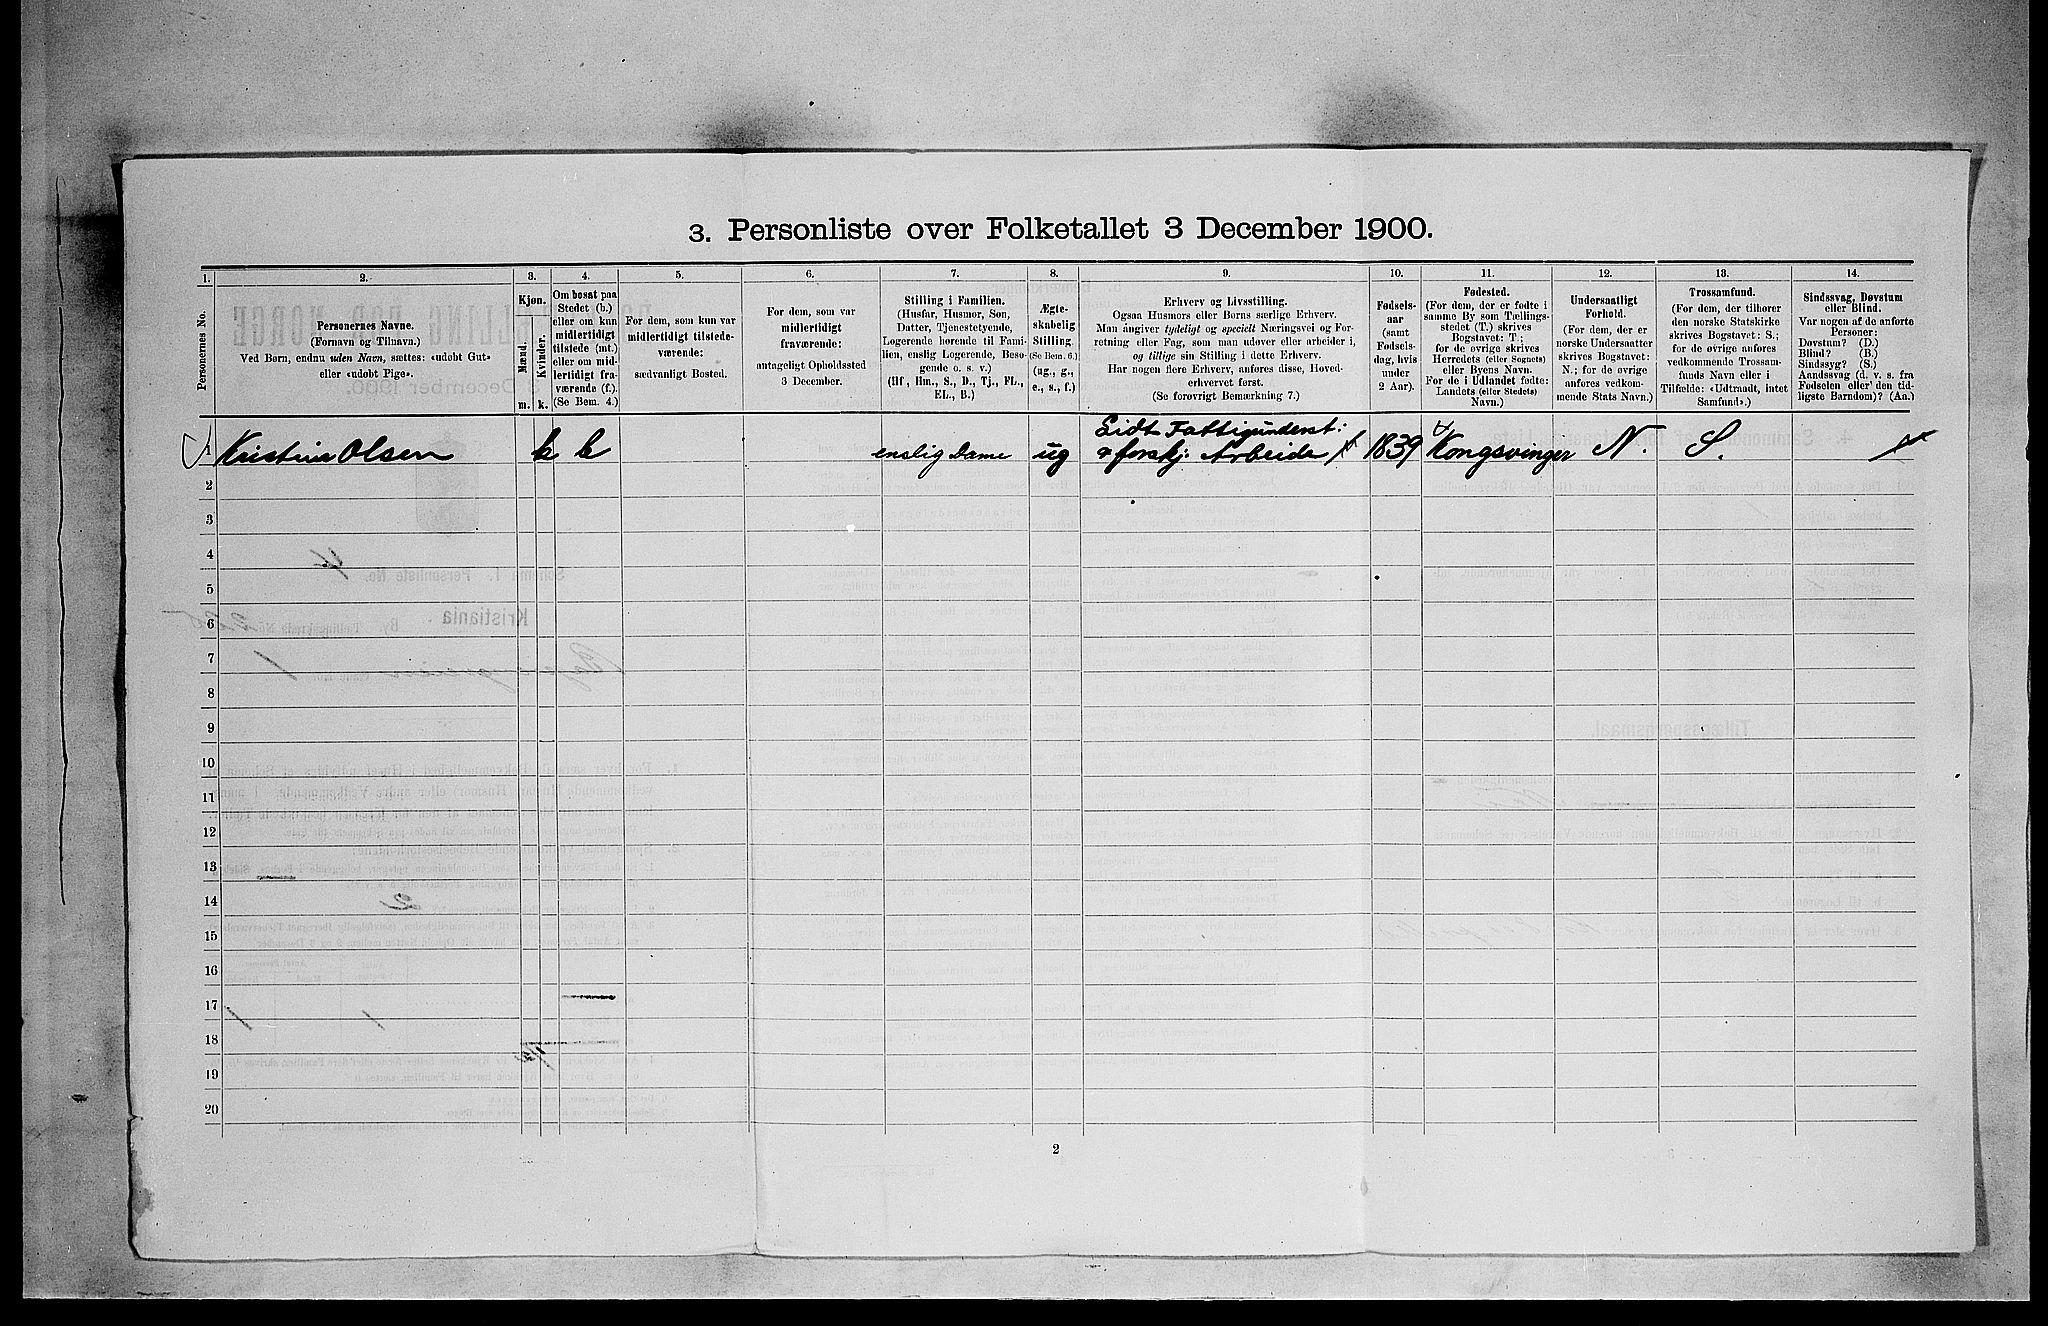 3. Personliste over Folketallet 3 December 1900.
1.
2.
3.
4.
5.
6.
7.
8.
9.
10.
11.
12.
13.
14.
Personernes No.
Personernes Navne.
(Fornavn og Tilnavn.)
Ved Børn, endnu uden Navn, sættes: «udøbt Gut»
eller «udøbt Pige».
Kjøn.
Mænd.
Kvinder.
m.
k.
Om bosat paa
Stedet (b.)
eller om kun
midlertidigt
tilstede (mt.)
eller om mid-
lertidigt fra-
værende (f.).
(Se Bem. 4.)
For dem, som kun var
midlertidigt tilstede-
værende:
sædvanligt Bosted.
For dem, som var
midlertidigt
fraværende:
antageligt Opholdssted
3 December.
Stilling i Familien.
(Husfar, Husmor, Søn,
Datter, Tjenestetyende,
Logerende hørende til Fami-
lien, enslig Logerende, Besø-
gende o. s. v.)
(Hf, Hm., S., D., Tj., FL.,
EL., B.)
Ægte-
skabelig
Stilling.
(Se Bem. 6.)
(ug., g.,
e., s., f.)
Erhverv og Livsstilling.
Ogsaa Husmors eller Børns særlige Erhverv.
Man angiver tydeligt og specielt Næringsvei og For-
retning eller Fag, som man udøver eller arbeider i,
og tillige sin Stilling i dette Erhverv.
Har nogen flere Erhverv, anføres disse, Hoved-
erhvervet først.
(Se forøvrigt Bemærkning 7.)
Fødsels-
aar
(samt
Fødsels-
dag, hvis
under
2 Aar).
Fødested.
(For dem, der er fødte i
samme By som Tællings-
stedet (T.) skrives
Bogstavet: T.;
for de øvrige skrives
Herredets (eller Sognets)
eller Byens Navn.
For de i Udlandet fødte:
Landets (eller Stedets)
Navn.)
Undersaatligt
Forhold.
(For dem, der er
norske Undersaatter
skrives Bogstavet:
N.; for de øvrige
anføres vedkom-
mende Stats Navn.)
Trossamfund.
(For dem, der tilhører
den norske Statskirke
skrives Bogstavet: S.;
for de øvrige anføres
vedkommende Trossam-
funds Navn eller i
Tilfælde: «Udtraadt, intet
Samfund».)
Sindssvag, Døvstum
eller Blind.
Var nogen af de anførte
Personer:
Døvstum? (D.)
Blind? (B.)
Sindssyg? (S.)
Aandssvag (d. v. s. fra
Fødselen eller den tid-
ligste Barndom)? (Aa.)
1 Kristine Olsen k b enslig Dame ug Lidt Fattigunderst:
& forskj: Arbeide 1839 Kongsvinger N. S.
2
3
4
5
6
7
8
9
10
11
12
13
14
15
16
17
18
19
20
2